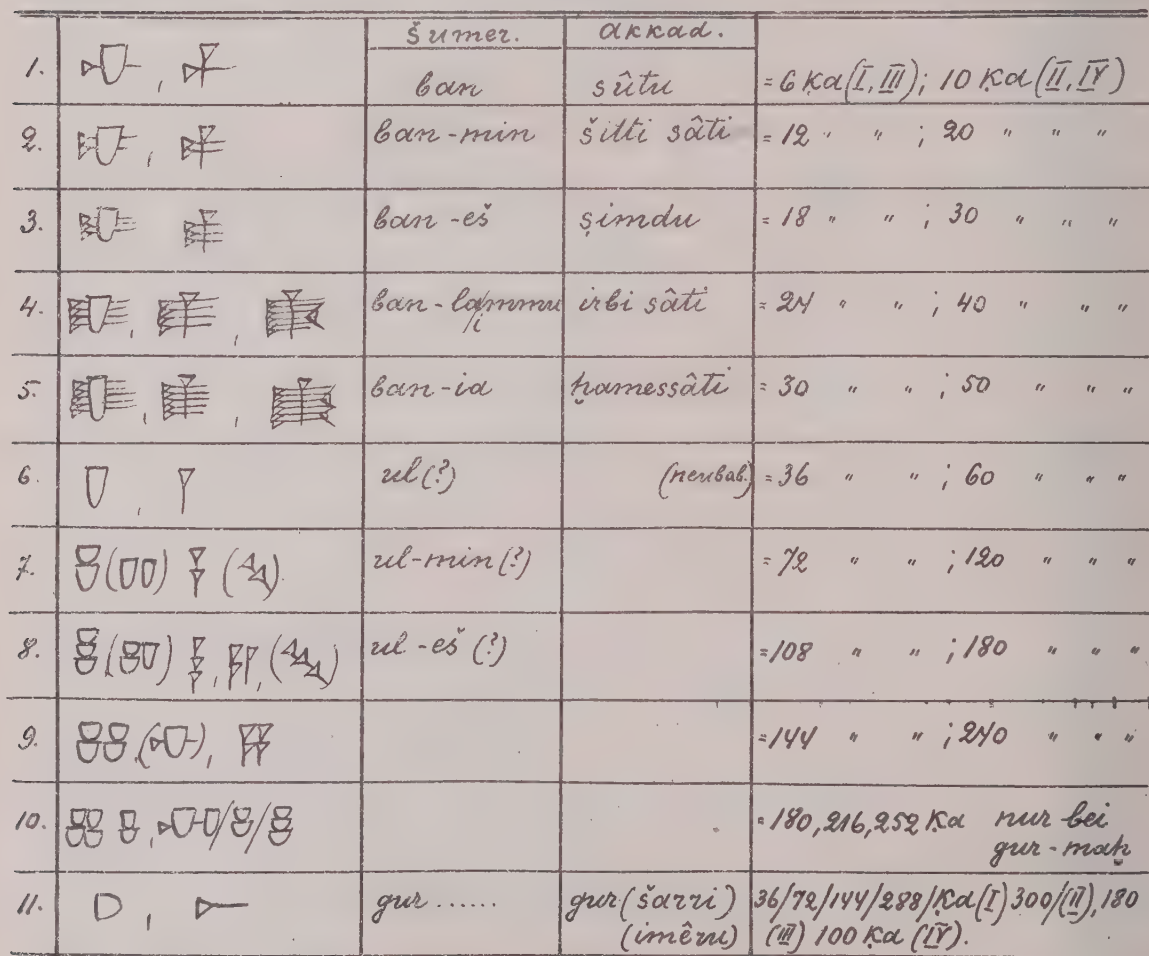 šumer. akkad.
1. ban sûtu = 6 Ḳa (I, III); 10 Ḳa (II, IV)
2. ban-min šitti sâti = 12 " " ; 20 " " "
3. ban-eš ṣimdu = 18 " " ; 30 " " "
4. ban-lammu/i irbi sâti = 24 " " ; 40 " " "
5. ban-ia ḫamessâti = 30 " " ; 50 " " "
6. ul(?) (neubab.) = 36 " " ; 60 " " "
7. ul-min(?) = 72 " " ; 120 " " "
8. ul-eš (?) = 108 " " ; 180 " " "
9. = 144 " " ; 240 " " "
10. = 180, 216, 252 Ḳa nur bei
gur-maḫ
11. gur...... gur (šarri) 36/72/144/288/Ḳa(I) 300/(II), 180
(imêru) (III) 100 Ḳa (IV).